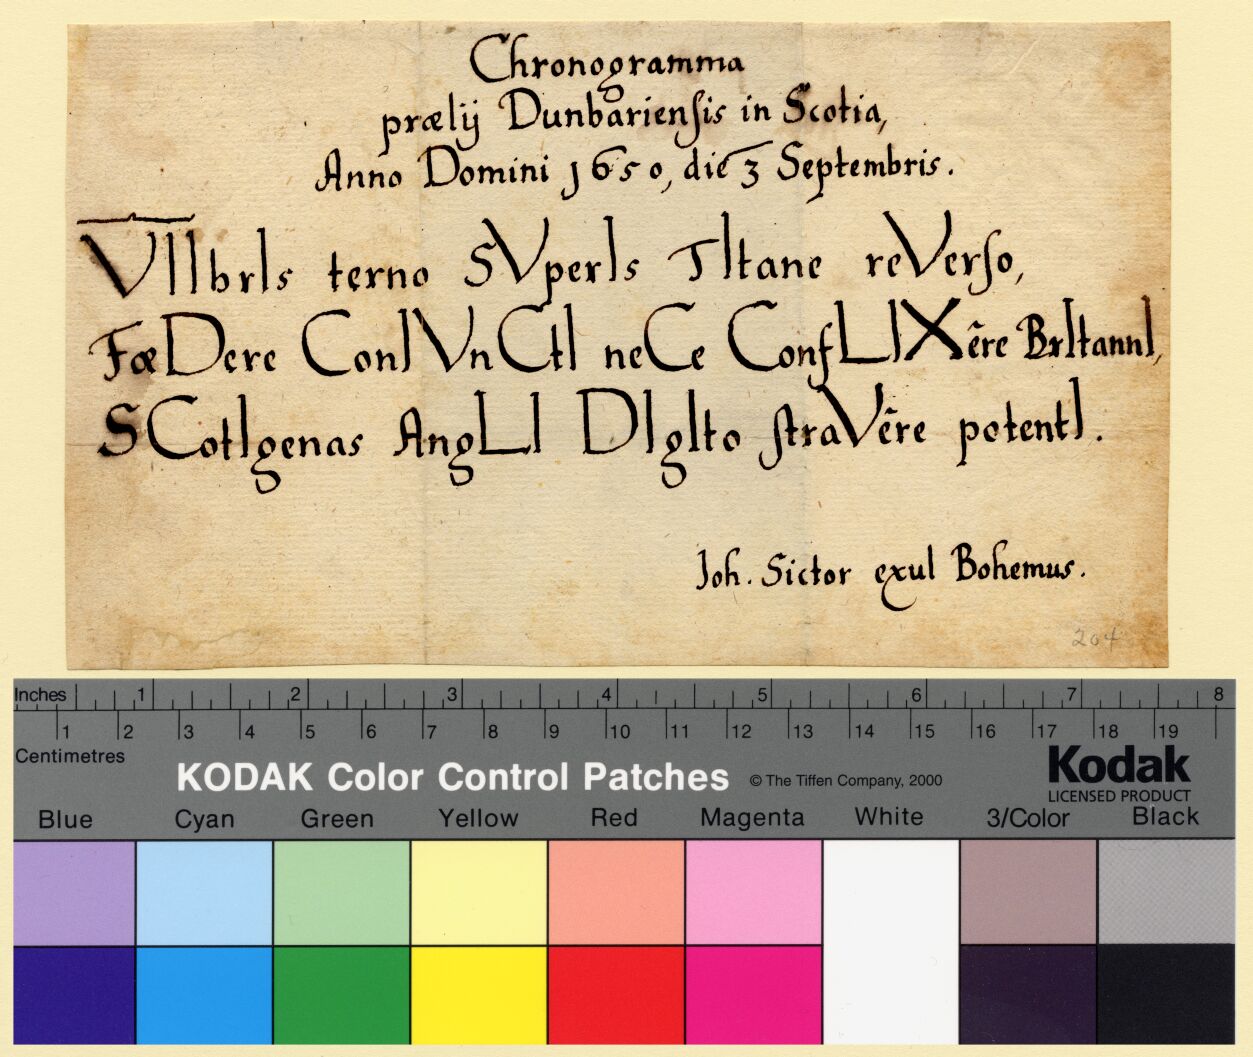 Chronogramma
prælij Dunbarienſis in Scotia,
Anno Domini 1650, die 3 Septembris.
VIIbrIs terno SVperIs TItane reVerſo,
FæDere ConIVnCtI neCe ConfLIXẽre BrItannI,
SCotIgenas AngLI DIgIto ſtraVẽre potentI.
Joh. Sictor exul Bohemus.
204
Inches 1 2 3 4 5 6 7 8
1 2 3 4 5 6 7 8 9 10 11 12 13 14 15 16 17 18 19
Centimetres
KODAK Color Control Patches © The Tiffen Company, 2000 Kodak
LICENSED PRODUCT
Blue Cyan Green Yellow Red Magenta White 3/Color Black